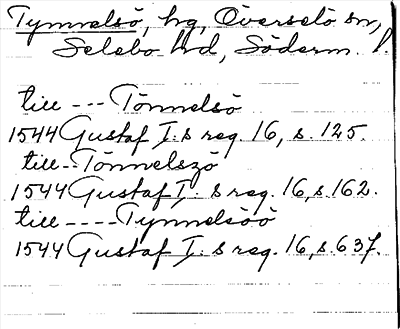 Tynnelsö, hg, Överselö sn,
Selebo hd, Söderm. l.
till --- Tönnelsö
1544 Gustaf I:s reg. 16, s. 125.
till -- Tönnelszö
1544 Gustaf I:s reg. 16, s. 162.
till ---- Tynnelsöö
1544 Gustaf I:s reg. 16, s. 637.